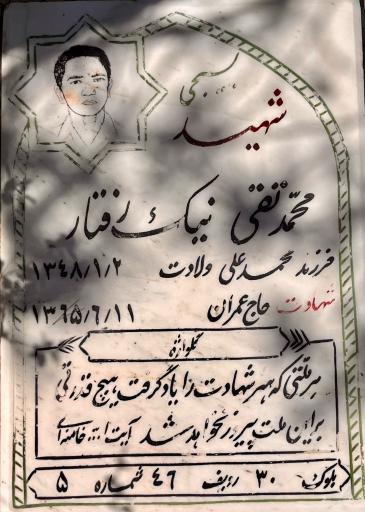 بسیجی
شهید
محمد تقی نیک رفتار
فرزند محمد علی ولادت ۱۳۴۸/۱/۲
شهادت حاج عمران ۱۳۶۵/۶/۱۱
گلواژه
هر ملتی که هنر شهادت را یاد گرفت هیچ قدرتی
بر این ملت پیروز نخواهد شد آیت الله خامنه‌ای
بلوک ۳۰ ردیف ۴۶ شماره ۵